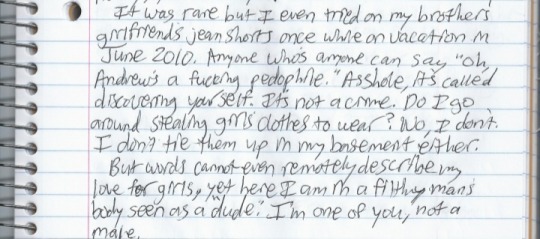 It was rare but I even tried on my brother's
girlfriend's jean shorts once while on vacation in
June 2010. Anyone who's anyone can say "Oh,
Andrew's a fucking pedophile." Asshole, it's called
discovering yourself. It's not a crime. Do I go
around stealing girls clothes to wear? No, I don't.
I don't tie them up in my basement either.
But words cannot even remotely describe my
love for girls, yet here I am in a filthy man's
body seen as a "dude." I'm one of you, not a
male.